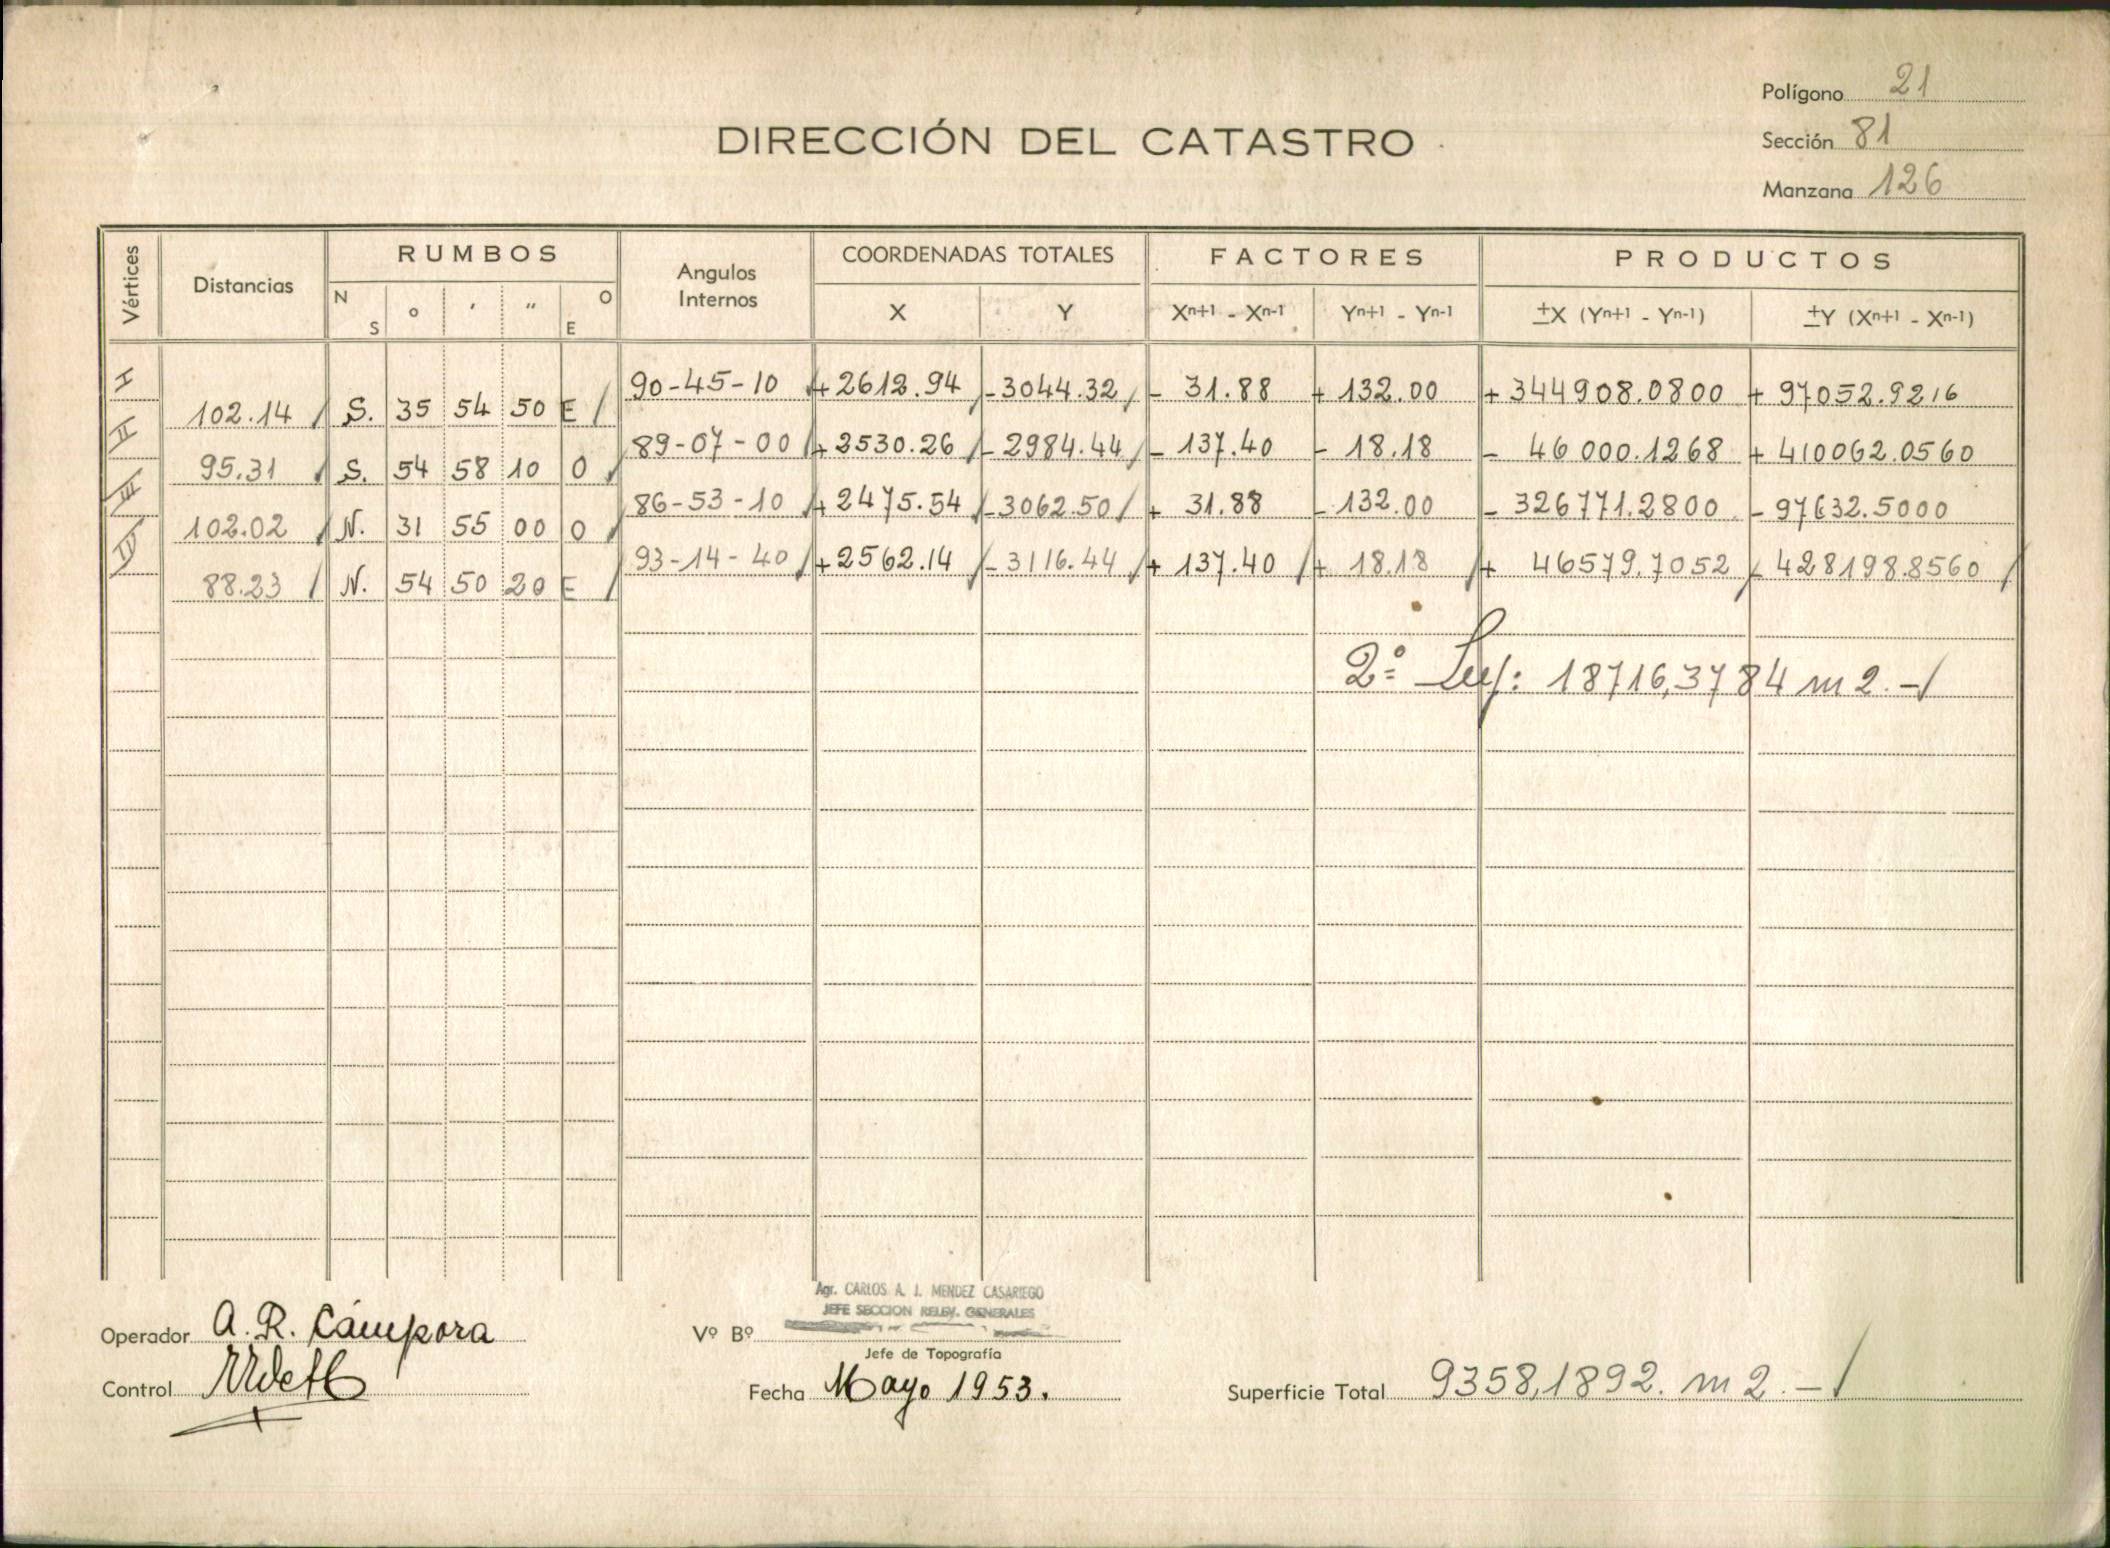 Polígono 21
DIRECCIÓN DEL CATASTRO
Sección 81
Manzana 126
Vértices Distancias RUMBOS Angulos Internos COORDENADAS TOTALES FACTORES PRODUCTOS
N S ° ' " O E X Y Xn+1 - Xn-1 Yn+1 - Yn-1 ±X (Yn+1 - Yn-1) ±Y (Xn+1 - Xn-1)
I 90-45-10 +2612.94 -3044.32 - 31.88 + 132.00 + 344908.0800 + 97052.9216
102.14 S. 35 54 50 E
II 89-07-00 +2530.26 - 2984.44 - 137.40 - 18.18 - 46000.1268 + 410062.0560
95.31 S. 54 58 10 O
III 86-53-10 +2475.54 -3062.50 + 31.88 - 132.00 - 326771.2800 - 97632.5000
102.02 N. 31 55 00 O
IV 93-14-40 +2562.14 - 3116.44 + 137.40 + 18.18 + 46579.7052 - 428198.8560
88.23 N. 54 50 20 E
2º Sup: 18716,3784 m2.-
Agr. CARLOS A. J. MENDEZ CASARIEGO
JEFE SECCION RELEV. GENERALES
Operador A. R. Cámpora Vº Bº
Jefe de Topografía
Control Fecha Mayo 1953. Superficie Total 9358,1892. m2.-